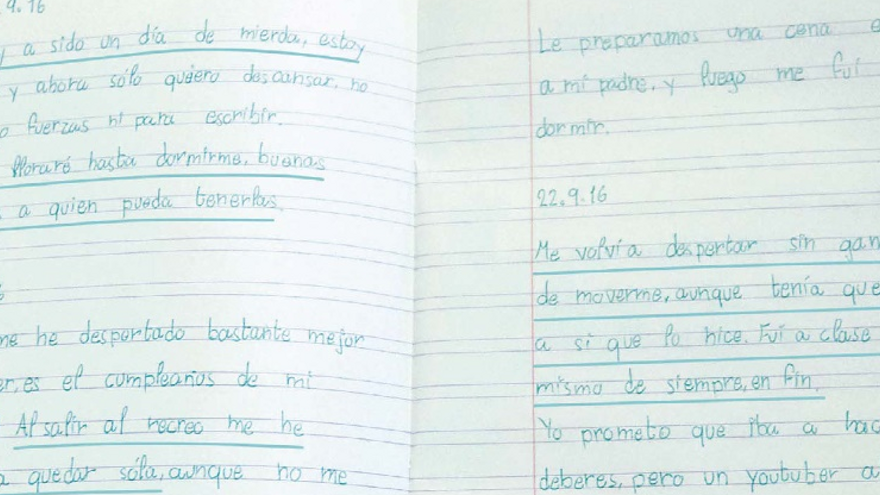 9.16
a sido un día de mierda, estoy
y ahora sólo quiero descansar, no
fuerzas ni para escribir.
lloraré hasta dormirme, buenas
a quien pueda tenerlas.
me he despertado bastante mejor
es el cumpleaños de mi
Al salir al recreo me he
a quedar sóla, aunque no me
Le preparamos una cena e
a mi padre, y luego me fui
dormir.
22.9.16
Me volví a despertar sin gan
de moverme, aunque tenía que
a si que lo hice. Fui a clase
mismo de siempre, en fin.
Yo prometo que iba a hac
deberes, pero un youtuber a